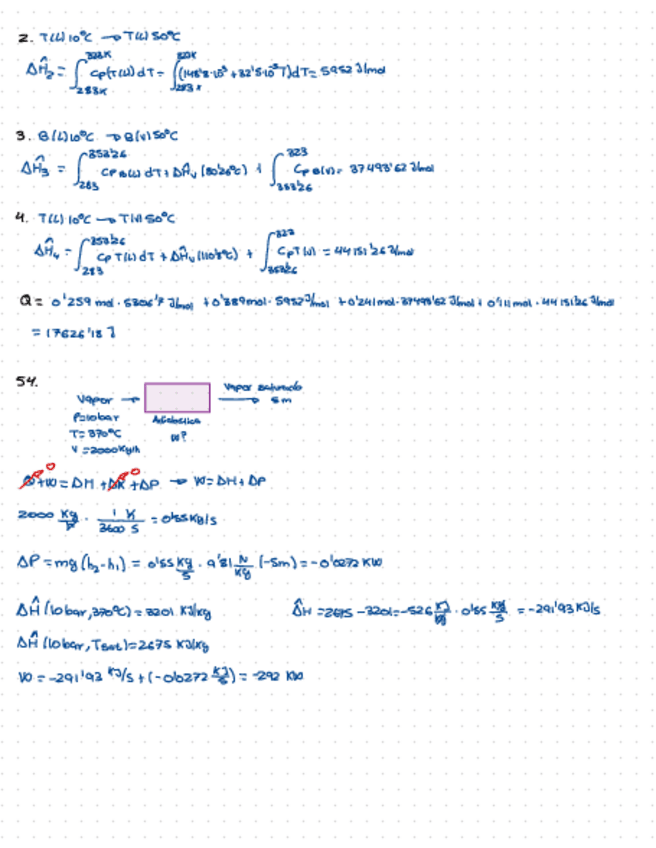 2. T(L) 10°C → T(L) 50°C
ΔĤ₂ = ∫₂₈₃K³²³K Cp(T(L)) dT = ∫₂₈₃K³²³K (148'8·10⁻³ + 32'5·10⁻⁵T) dT = 5952 J/mol
3. B(L) 10°C → B(V) 50°C
ΔĤ₃ = ∫₂₈₃³⁵³'²⁶ Cp B(L) dT + ΔĤᵥ (80'26°C) + ∫₃₅₃'₂₆³²³ Cp B(V) = 37493'62 J/mol
4. T(L) 10°C → T(V) 50°C
ΔĤ₄ = ∫₂₈₃³⁵³'²⁶ Cp T(L) dT + ΔĤᵥ (110'8°C) + ∫₃₅₃'₂₆³²³ Cp T(V) = 44151'26 J/mol
Q = 0'259 mol · 5306'7 J/mol + 0'389 mol · 5952 J/mol + 0'241 mol · 37493'62 J/mol + 0'111 mol · 44151'26 J/mol
= 17626'18 J
54.
Vapor → Vapor saturado
P=10bar Adiabática 5m
T=370°C W?
V=2000Kg/h
Q+W = ΔH + ΔK + ΔP → W = ΔH + ΔP
2000 Kg/h · 1 h/3600 s = 0'55 Kg/s
ΔP = mg(h₂-h₁) = 0'55 Kg/s · 9'81 N/Kg (-5m) = -0'0272 KW
ΔĤ (10 bar, 370°C) = 3201 KJ/Kg ΔH = 2675 - 3201 = -526 KJ/Kg · 0'55 Kg/s = -291'93 KJ/s
ΔĤ (10 bar, Tsat) = 2675 KJ/Kg
W = -291'93 KJ/s + (-0'0272 KJ/s) = -292 KW